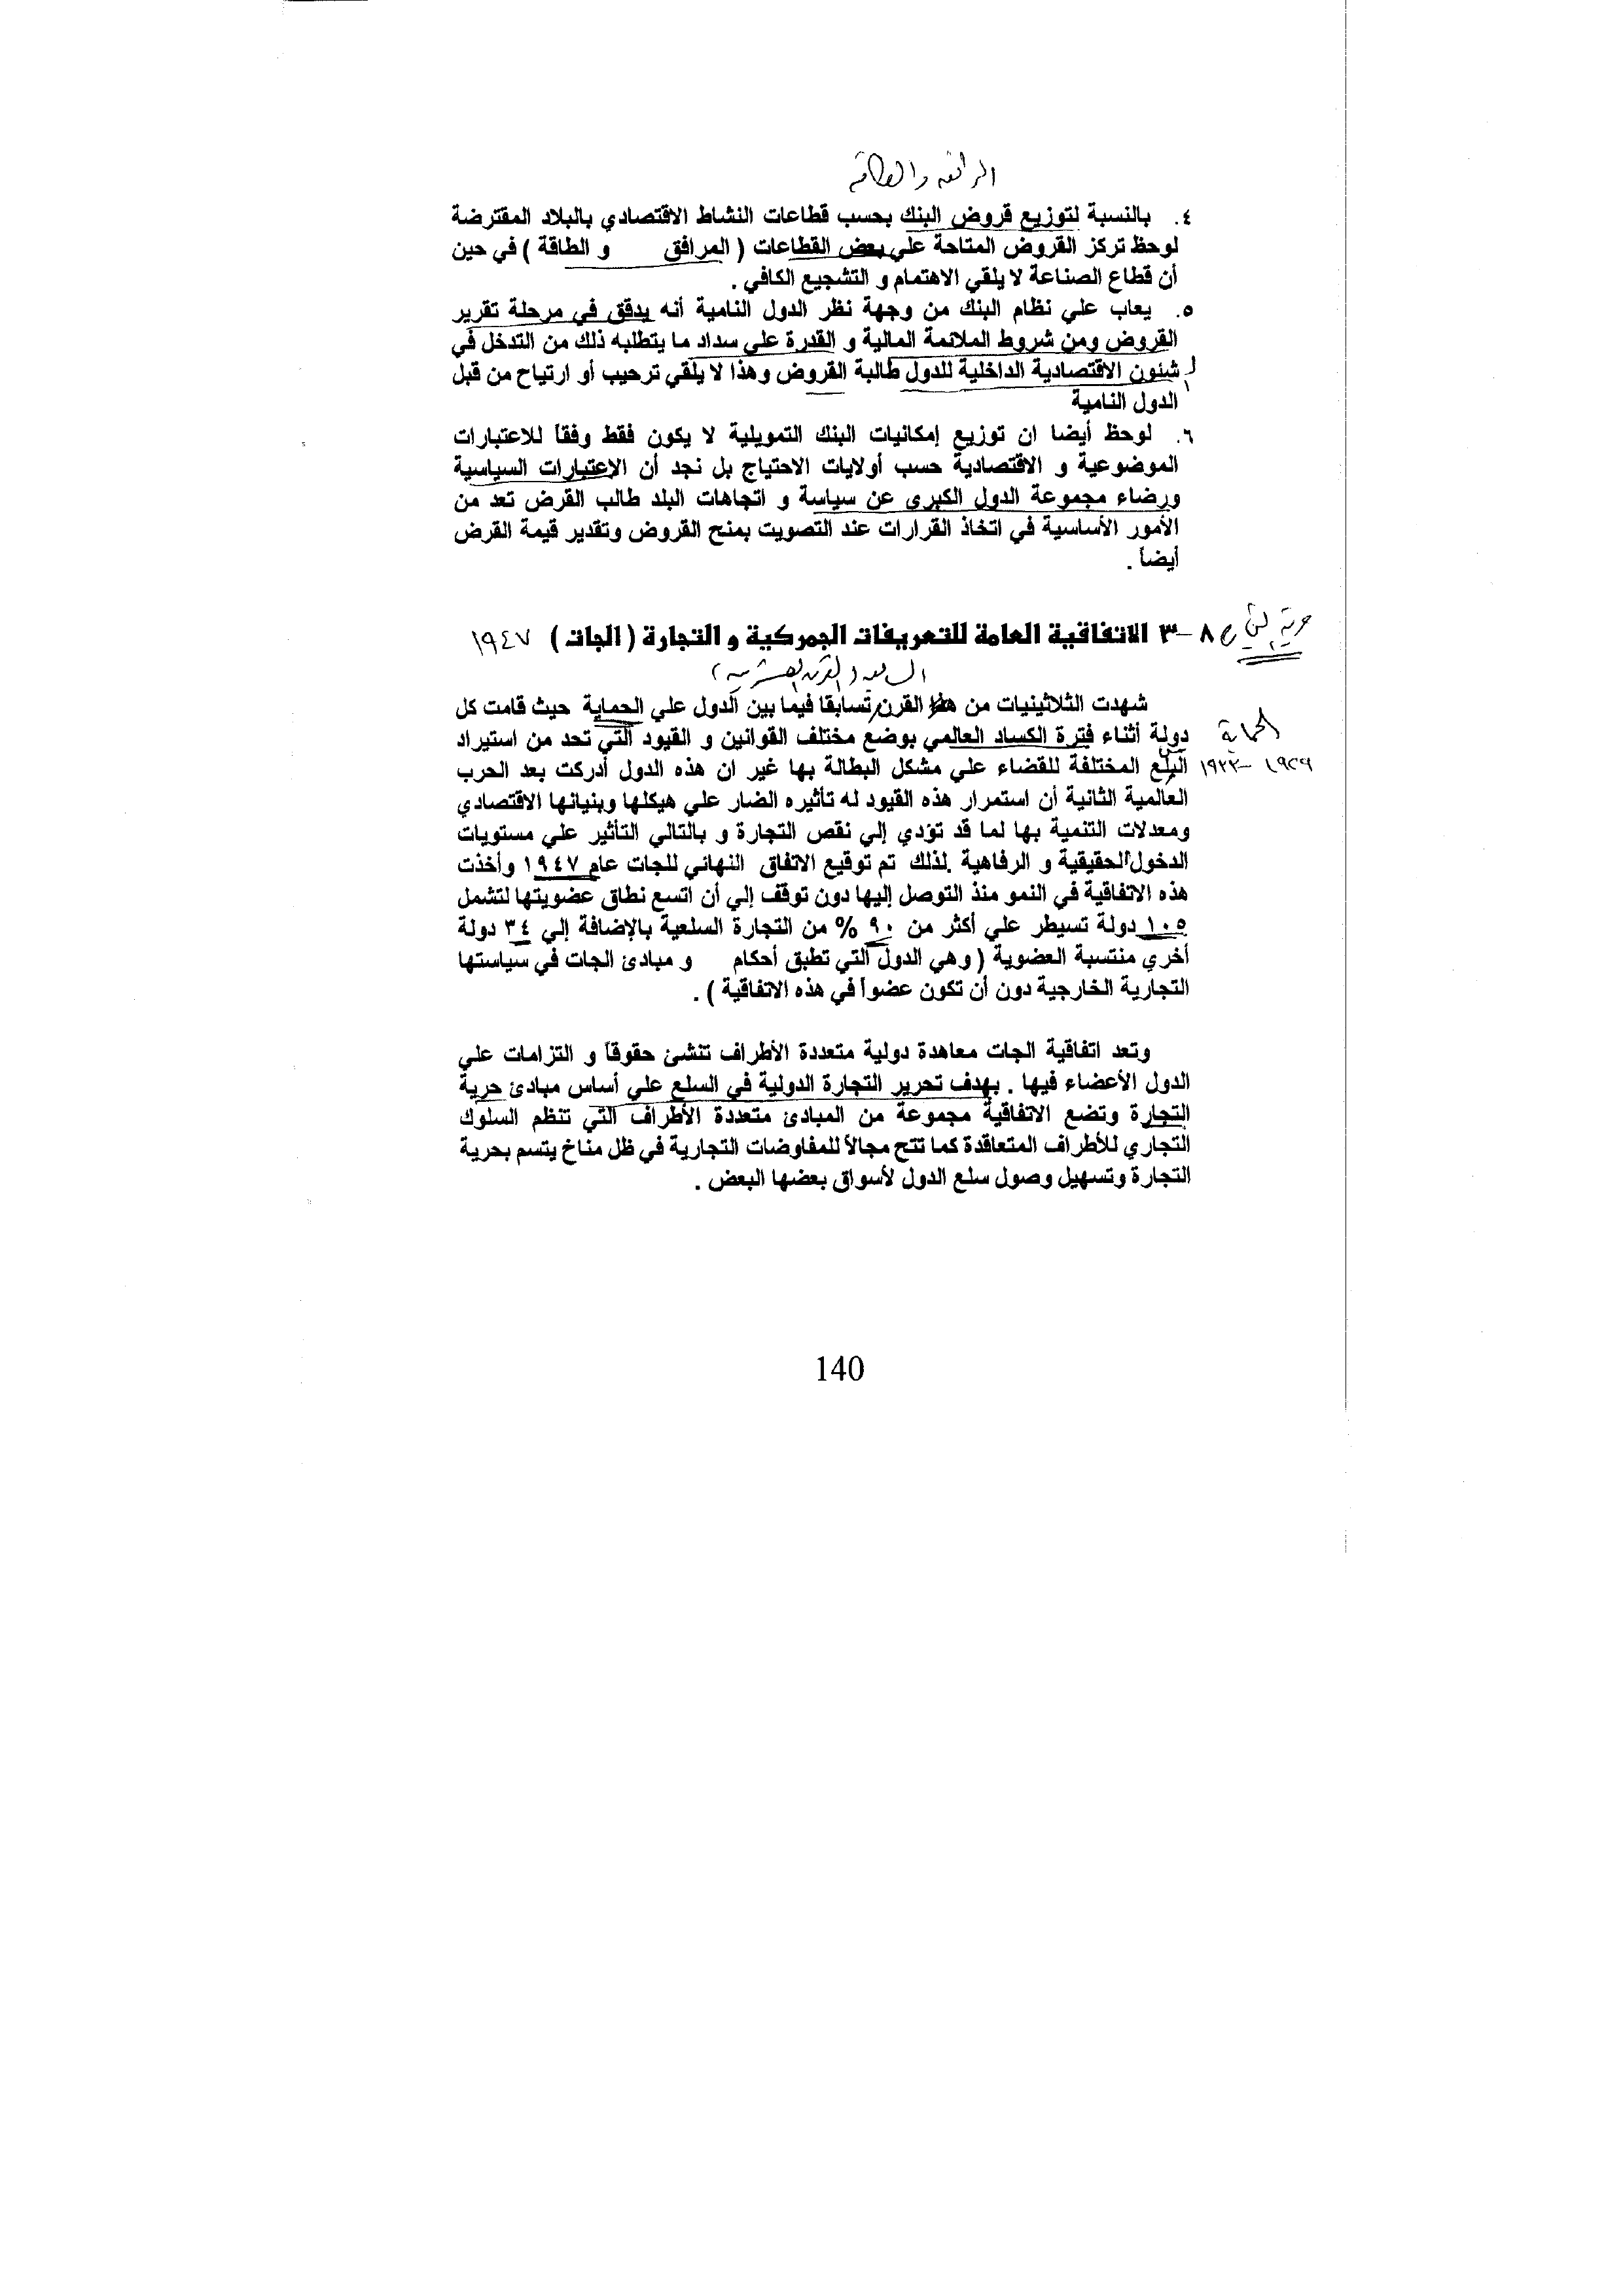 المرافق والطاقة
٤. بالنسبة لتوزيع قروض البنك بحسب قطاعات النشاط الاقتصادي بالبلاد المقترضة
لوحظ تركز القروض المتاحة علي بعض القطاعات ( المرافق و الطاقة ) في حين
أن قطاع الصناعة لا يلقي الاهتمام و التشجيع الكافي .
٥. يعاب علي نظام البنك من وجهة نظر الدول النامية أنه يدقق في مرحلة تقرير
القروض ومن شروط الملائمة المالية و القدرة علي سداد ما يتطلبه ذلك من التدخل في
شئون الاقتصادية الداخلية للدول طالبة القروض وهذا لا يلقي ترحيب أو ارتياح من قبل
الدول النامية
٦. لوحظ أيضا ان توزيع إمكانيات البنك التمويلية لا يكون فقط وفقاً للاعتبارات
الموضوعية و الاقتصادية حسب أولايات الاحتياج بل نجد أن الإعتبارات السياسية
ورضاء مجموعة الدول الكبرى عن سياسة و اتجاهات البلد طالب القرض تعد من
الأمور الأساسية في اتخاذ القرارات عند التصويت بمنح القروض وتقدير قيمة القرض
أيضاً .
حرية
٨-٣ الاتفاقية العامة للتعريفات الجمركية و التجارة ( الجات ) ١٩٤٧
القرن العشرين
شهدت الثلاثينيات من هذا القرن تسابقا فيما بين الدول علي الحماية حيث قامت كل
الحماية
دولة أثناء فترة الكساد العالمي بوضع مختلف القوانين و القيود التي تحد من استيراد
١٩٢٩ - ١٩٣٣
السلع المختلفة للقضاء علي مشكل البطالة بها غير ان هذه الدول أدركت بعد الحرب
العالمية الثانية أن استمرار هذه القيود له تأثيره الضار علي هيكلها وبنيانها الاقتصادي
ومعدلات التنمية بها لما قد تؤدي إلي نقص التجارة و بالتالي التأثير علي مستويات
الدخول الحقيقية و الرفاهية .لذلك تم توقيع الاتفاق النهائي للجات عام ١٩٤٧ وأخذت
هذه الاتفاقية في النمو منذ التوصل إليها دون توقف إلي أن اتسع نطاق عضويتها لتشمل
١٠٥ دولة تسيطر علي أكثر من ٩٠ % من التجارة السلعية بالإضافة إلي ٣٤ دولة
أخري منتسبة العضوية ( وهي الدول التي تطبق أحكام و مبادئ الجات في سياستها
التجارية الخارجية دون أن تكون عضواً في هذه الاتفاقية ) .
وتعد اتفاقية الجات معاهدة دولية متعددة الأطراف تنشئ حقوقاً و التزامات علي
الدول الأعضاء فيها . بهدف تحرير التجارة الدولية في السلع علي أساس مبادئ حرية
التجارة وتضع الاتفاقية مجموعة من المبادئ متعددة الأطراف التي تنظم السلوك
التجاري للأطراف المتعاقدة كما تتح مجالاً للمفاوضات التجارية في ظل مناخ يتسم بحرية
التجارة وتسهيل وصول سلع الدول لأسواق بعضها البعض .
140